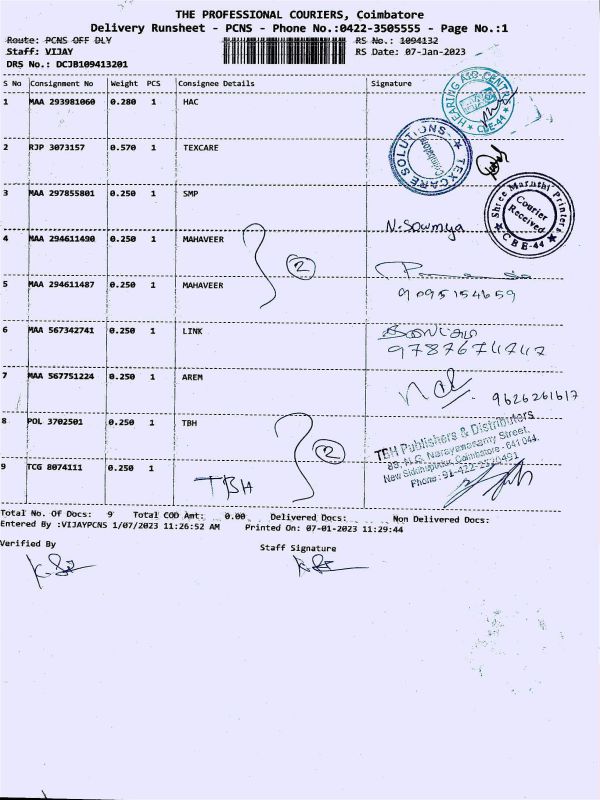 THE PROFESSIONAL COURIERS, Coimbatore
Delivery Runsheet - PCNS - Phone No.:0422-3505555 - Page No.:1
Route: PCNS OFF DLY
RS No.: 1094132
Staff: VIJAY
RS Date: 07-Jan-2023
DRS No.: DCJB109413201
S No Consignment No Weight PCS Consignee Details Signature
1 MAA 293981060 0.280 1 HAC
HEARING AID CENTRE
CBE-44
2 RJP 3073157 0.570 1 TEXCARE
TEXCARE SOLUTIONS
Coimbatore
3 MAA 297855801 0.250 1 SMP
Shree Maruthi Printers
Courier
Received
CBE-44
N. Sowmya
4 MAA 294611490 0.250 1 MAHAVEER
2
5 MAA 294611487 0.250 1 MAHAVEER
9095154659
6 MAA 567342741 0.250 1 LINK
9787674747
7 MAA 567751224 0.250 1 AREM
9626261617
8 POL 3702501 0.250 1 TBH
2
TBH Publishers & Distributors
88, N.G. Narayanasamy Street,
New Siddhapudur, Coimbatore - 641 044.
Phone : 91-422-2520491
9 TCG 8074111 0.250 1
TBH
Total No. Of Docs: 9 Total COD Amt: 0.00 Delivered Docs: Non Delivered Docs:
Entered By :VIJAYPCNS 1/07/2023 11:26:52 AM Printed On: 07-01-2023 11:29:44
Verified By
Staff Signature